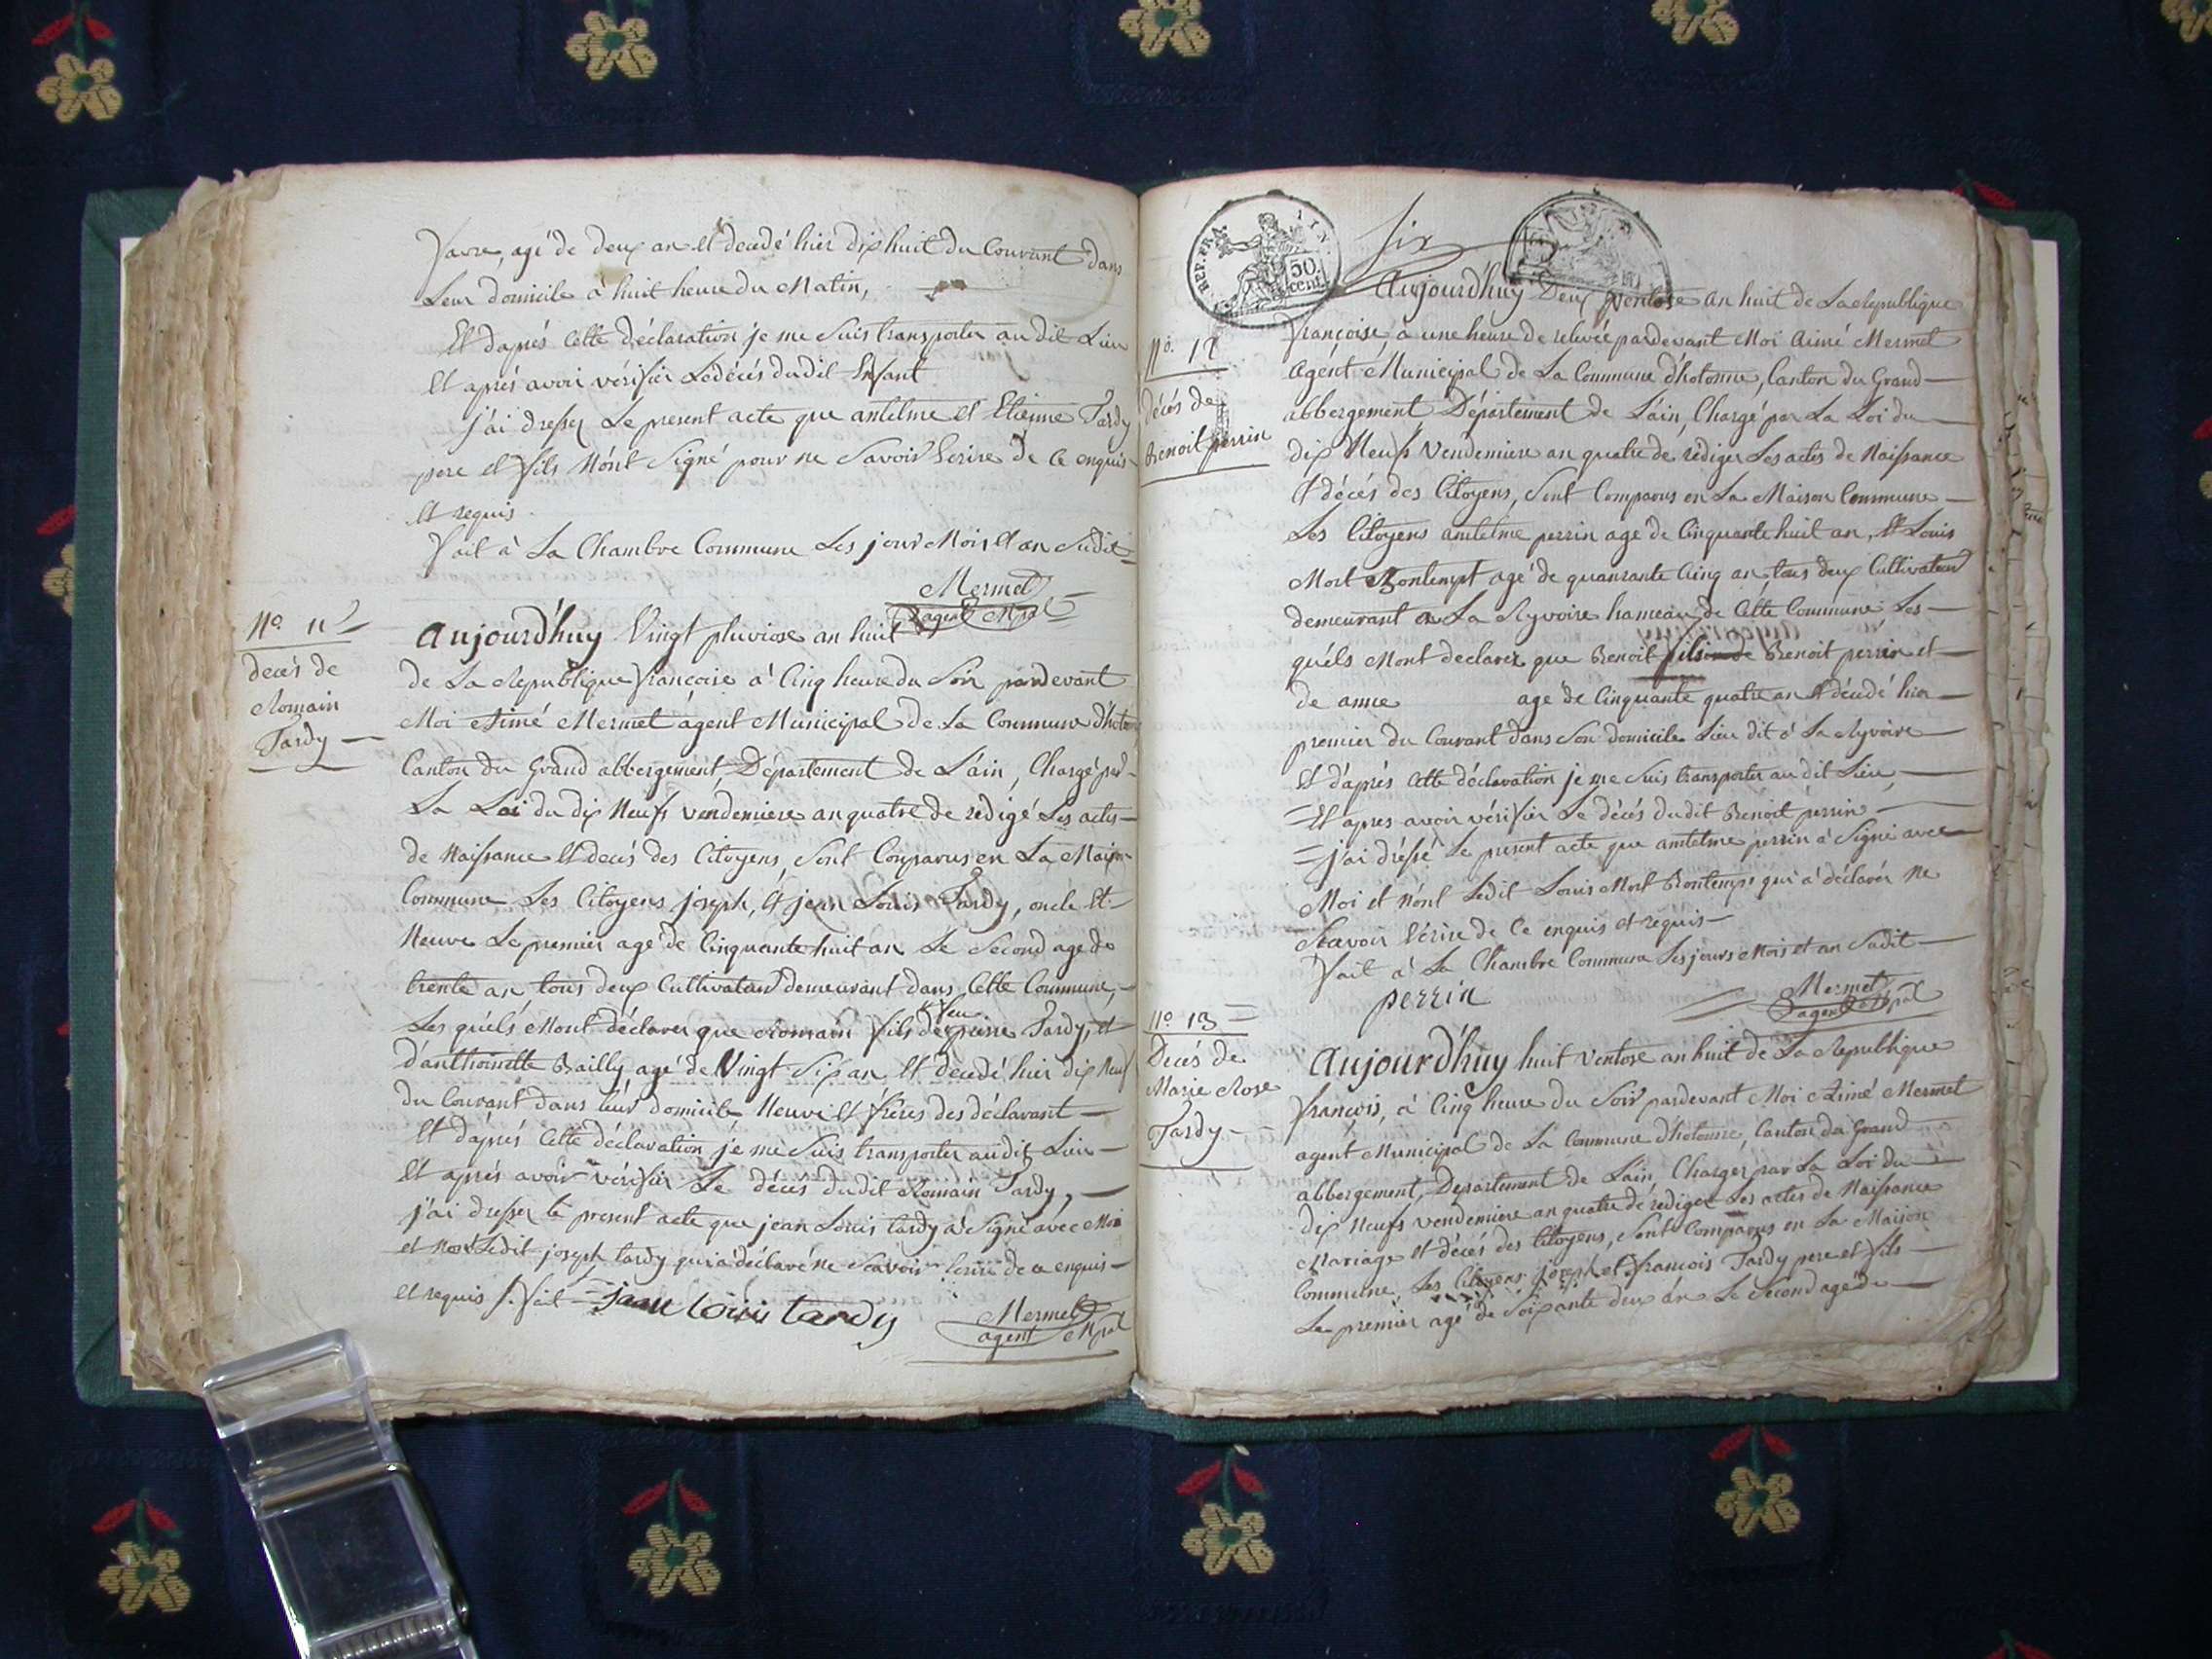 favre, agé de deux an Et decedé hier dix huit du Courant dans
Leur domicile à huit heure du Matin,
Et d'aprés Cette déclaration je me Suis transporter au dit Lieu
Et aprés avoir vérifier Le décés dudit Enfant
j'ai dresser Le present acte que antelme et Etienne Tardy
pere et fils N'ont Signé pour ne Savoir Ecrire de Ce enquis
Et requis
fait à La Chambre Commune Les jour Mois et an Sudit
Mermet
agent Mpal
No. 11
decés de
Romain
Tardy
Aujourd'huy Vingt pluviose an huit
de La Republique françoise à Cinq heure du Soir pardevant
Moi Aimé Mermet agent Municipal de La Commune d'hotonne
Canton du Grand abbergement, Département de L'ain, Chargé par
La Loi du dix Neufs vendemiere an quatre de redigé Les actes
de Naissance Et decés des Citoyens, Sont Comparus en La Maison
Commune Les Citoyens joseph, et jean Louis Tardy, oncle Et
Neuve Le premier agé de Cinquante huit an Le Second agé de
trente an, tous deux Cultivateur demeurant dans Cette Commune,
Les quels M'ont déclarer que Romain fils de feu pierre Tardy, et
d'anthoinette Bailly agé de Vingt Six an Et decedé hier dix Neuf
du Courant dans leur domicile Neuve et frères des déclarant
Et d'aprés Cette déclaration je me Suis transporter audit Lieu
Et aprés avoir vérifier Le décés dudit Romain Tardy,
j'ai dresser le present acte que jean Louis tardy à Signé avec Moi
et Non Ledit joseph tardy qui à déclaré ne Scavoir Ecrire de ce enquis
et requis /. fait
jean louis tardy
Mermet
agent Mpal
REP. FRA.
50 cent.
Six
No. 12
décés de
Benoit perrin
Aujourd'huy Deux Ventose an huit de La Republique
françoise à une heure de relevée pardevant Moi Aimé Mermet
Agént Municipal de La Commune d'hotonne, Canton du Grand
abbergement Département de L'ain, Chargé par La Loi du
dix Neufs Vendemiere an quatre de rédiger Les actes de Naissance
Et décés des Citoyens, Sont Comparus en La Maison Commune
Les Citoyens antelme perrin agé de Cinquante huit an, Et Louis
Mort Bontempt agé de quanrante Cinq an tous deux Cultivateur
demeurant à La Ryvoire hameau de Cette Commune Les
quéls M'ont declarer que Benoit fils de Benoit perrin et
de anne agé de Cinquante quatre an Et décédé hier
premier du Courant dans Son domicile Lieu dit à La Ryvoire
Et d'aprés Cette déclaration je me Suis transporter au dit Lieu,
Et apres avoir vérifier Le décés dudit Benoit perrin
j'ai dréssé Le present acte que antelme perrin à Signé avec
Moi et N'ont Ledit Louis Mort Bontemps qui à déclarér Ne
Scavoir Ecrire de Ce enquis et requis
fait à La Chambre Commune Les jours Mois et an Sudit
perrin
Mermet
agent Mpal
No. 13
Decés de
Marie Rose
Tardy
Aujourd'huy huit Ventose an huit de La Republique
françois, à Cinq heure du Soir pardevant Moi Aimé Mermet
agent Municipal de La Commune d'hotonne, Canton du Grand
abbergement, Departement de L'ain, Charger par La Loi du
dix Neufs vendemiere an quatre de rediger Les actes de Naissance
Mariage et décés des Citoyens, Sont Comparus en La Maison
Commune, Les Citoyens joseph et francois Tardy pere et fils
Le premier agé de Soixante deux an Le Second agé de